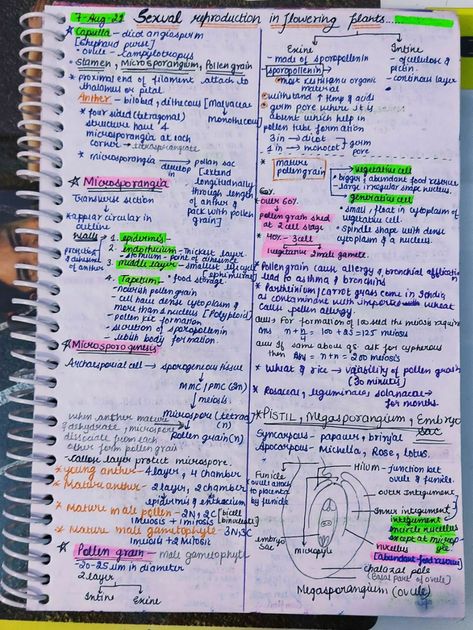 7-Aug-21 Sexual reproduction in flowering plants....
☆ Capsella - dicot angiosperm
[shepherd purse]
• ovule - campylotropus
Stamen, Microsporangium, Pollen grain
* proximal end of filament attach to
thalamus or petal
Anther - bilobed, dithecous [Malvaceae
Monothecous]
* four sided (tetragonal)
structure have 4
microsporangia at each
corner
* microsporangia develop in → pollen sac
[extend
longitudinally
through length
of anther &
pack with pollen
grain]
☆ Microsporangia
Transverse section
* appear circular in
outline
Walls
1. epidermis
2. Endothecium - thickest layer
• stomium - point of dehisence
3. middle layer - smallest lifecycle
4. Tapetum - food storage
- nourish pollen grain
- cell have dense cytoplasm &
more than 1 nucleus [Polyploid]
- pollen kit formation
- secretion of sporopollenin
- ubish body formation.
☆ Microsporogenesis
Archesporial cell → sporogenous tissue
↓
MMC/PMC (2n)
↓ meiosis
Microspore (tetrad)
(n)
↓
Pollen grain (n)
when anther mature
& dehydrate, microspore
dissociate from each
other form pollen grain
- Callose layer protect microspore.
* young anther - 4 layer, 4 chamber
* Mature anther - 2 layer, 2 chamber
epidermis & endothecium
* Mature male pollen - 2N; 2C [bicell
binucleate]
1 meiosis + 1 mitosis
* Mature male gametophyte - 3N; 3C
meiosis + 2 mitosis
☆ Pollen grain - male gametophyte
- 20-25 um in diameter
2 layer
Intine Exine
Exine
- made of sporopollenin
sporopollenin
• most resistant organic
material
• withstand ↑ temp & acids
* germ pore where it is
absent which help in
pollen tube formation
3 in → dicot
1 in → monocot } germ
pore
Intine
- of cellulose &
pectin
- continous layer
* mature
pollen grain
vegetative cell
• bigger & abundant food reserve
- large irregular shape nucleus.
generative cell
• small, float in cytoplasm of
vegetative cell.
• spindle shape with dense
cytoplasm & a nucleus.
60%
* over 60%
↓
pollen grain shed
at 2 cell stage
* 40% - 3 cell
↓
1 vegetative 2 male gamete.
* Pollen grain cause allergy & bronchial afflictions
lead to asthma & bronquins
* Parthenium/carrot grass come in India
as contaminant with imported wheat
cause pollen allergy.
Ques - For formation of 100 seed the meiosis require
Ans n + n/4 = 100 + 25 = 125 meiosis
Ques If same above qs. ask for cyperous
then Ans = n + n = 200 meiosis
* Wheat & rice → viability of pollen grain
(30 minutes)
* Rosaceae, leguminales, solanaceae →
for months.
* Pistil, Megasporangium, Embryo
sac
Syncarpous - papaver, brinjal
Apocarpous - Michelia, Rose, lotus.
Funicle
(ovule attach
to placenta
by funicle)
→ Hilum - junction bet
ovule & funicle.
outer integument
inner integument
Integument
encircle nucellus
except at micropyle
nucellus
[abundant food reserve]
embryo
sac
micropyle
chalazal pole
(Basal part of ovule)
Megasporangium (ovule)